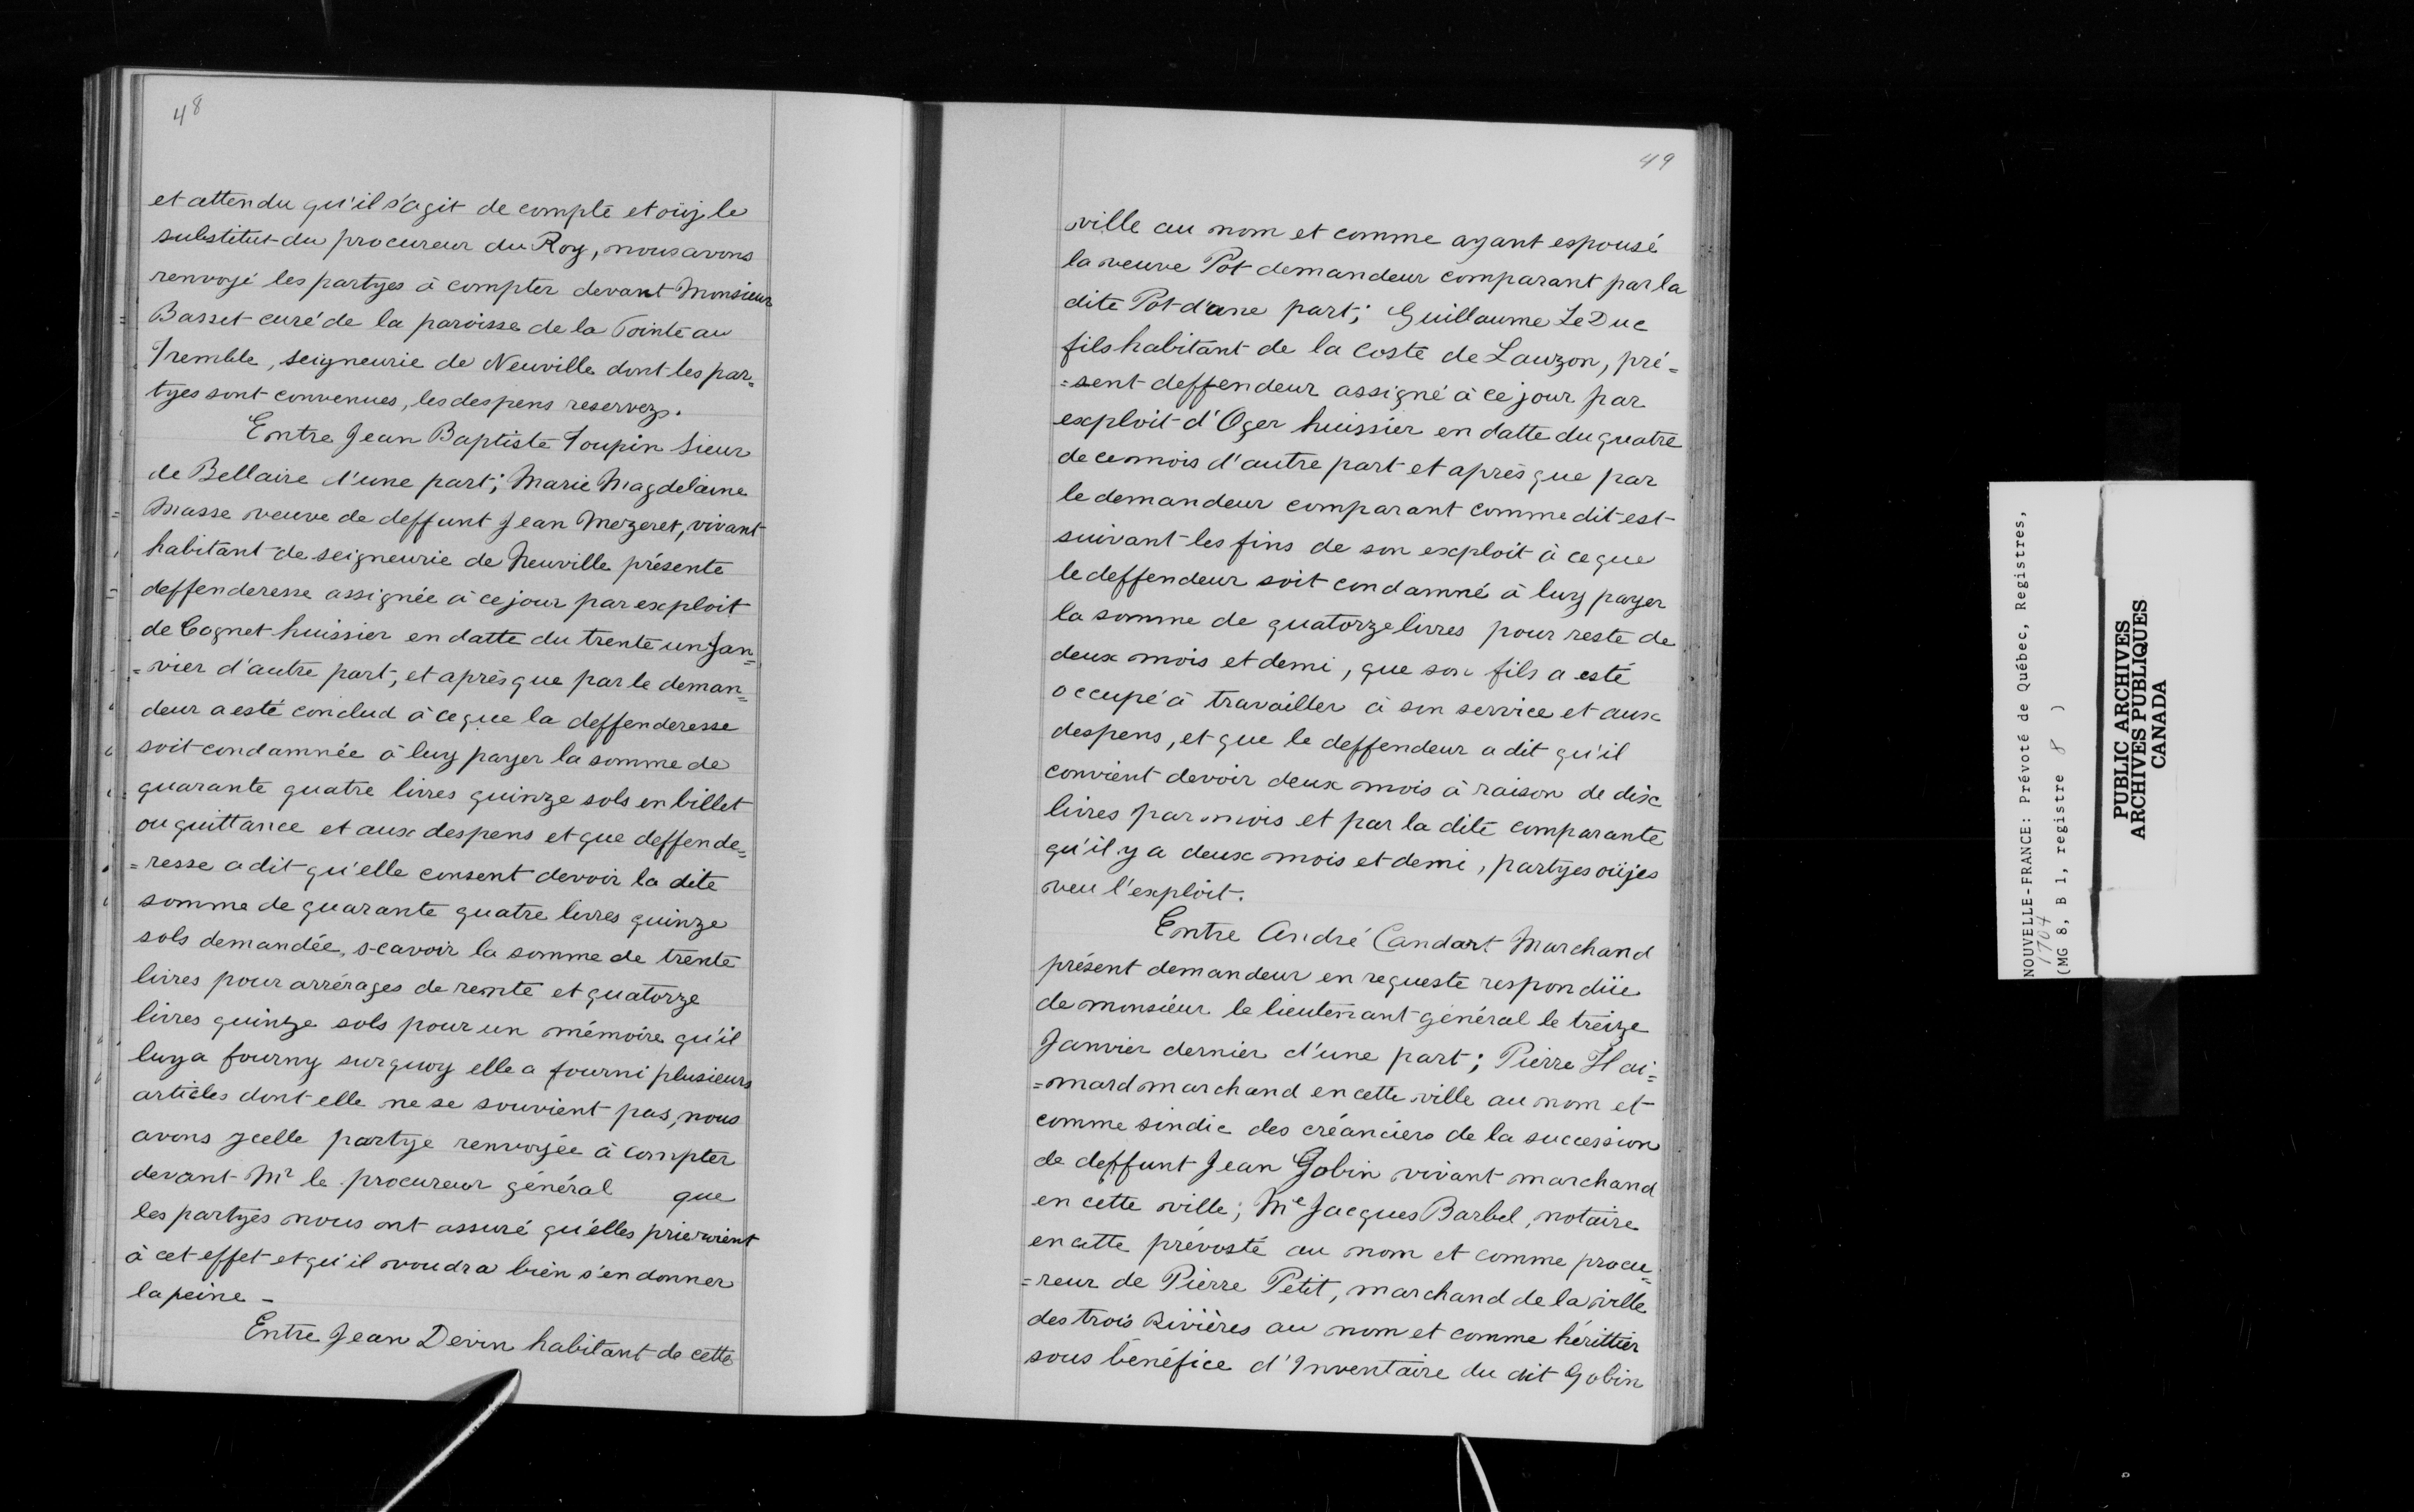 48
et attendu qu'il s'agit de compte et oüy le
substitut du procureur du Roy, nous avons
renvoyé les partyes à compter devant Monsieur
Basset curé de la paroisse de la Pointe au
Tremble, seigneurie de Neuville dont les par=
tyes sont convenues, les despens reservez.
Entre Jean Baptiste Toupin Sieur
de Bellaire d'une part; Marie Magdelaine
Masse veuve de deffunt Jean Mezeret, vivant
habitant de seigneurie de Neuville présente
deffenderesse assignée à ce jour par exploit
de Cognet huissier en datte du trente un Jan=
=vier d'autre part, et après que par le deman=
deur a esté conclud à ce que la deffenderesse
soit condamnée à luy payer la somme de
quarante quatre livres quinze sols en billet
ou quittance et aux despens et que deffende=
=resse a dit qu'elle consent devoir la dite
somme de quarante quatre livres quinze
sols demandée, scavoir la somme de trente
livres pour arrérages de rente et quatorze
livres quinze sols pour un mémoire qu'il
luy a fourny surquoy elle a fourni plusieurs
articles dont elle ne se souvient pas, nous
avons ycelle partye renvoyée à compter
devant Mr le procureur général que
les partyes nous ont assuré qu'elles prieroient
à cet effet et qu'il voudra bien s'en donner
la peine -
Entre Jean Devin habitant de cette
49
ville au nom et comme ayant espousé
la veuve Pot demandeur comparant par la
dite Pot d'une part; Guillaume Le Duc
fils habitant de la coste de Lauzon, pré=
=sent deffendeur assigné à ce jour par
exploit d'Oger huissier en datte du quatre
de ce mois d'autre part et après que par
le demandeur comparant comme dit est
suivant les fins de son exploit à ce que
le deffendeur soit condamné à luy payer
la somme de quatorze livres pour reste de
deux mois et demi, que son fils a esté
occupé à travailler à son service et aux
despens, et que le deffendeur a dit qu'il
convient devoir deux mois à raison de dix
livres par mois et par la dite comparante
qu'il y a deux mois et demi, partyes oüyes
veu l'exploit.
Entre André Candart Marchand
présent demandeur en requeste respondüe
de monsieur le lieutenant général le treize
Janvier dernier d'une part; Pierre Hai=
=mard marchand en cette ville au nom et
comme sindic des créanciers de la succession
de deffunt Jean Gobin vivant marchand
en cette ville; Me Jacques Barbel, notaire
en cette prévosté au nom et comme procu=
=reur de Pierre Petit, marchand de la ville
des trois Rivières au nom et comme hérittier
sous bénéfice d'Inventaire du dit Gobin
NOUVELLE-FRANCE: Prévoté de Québec, Registres,
1704
(MG 8, B 1, registre 8 )
PUBLIC ARCHIVES
ARCHIVES PUBLIQUES
CANADA